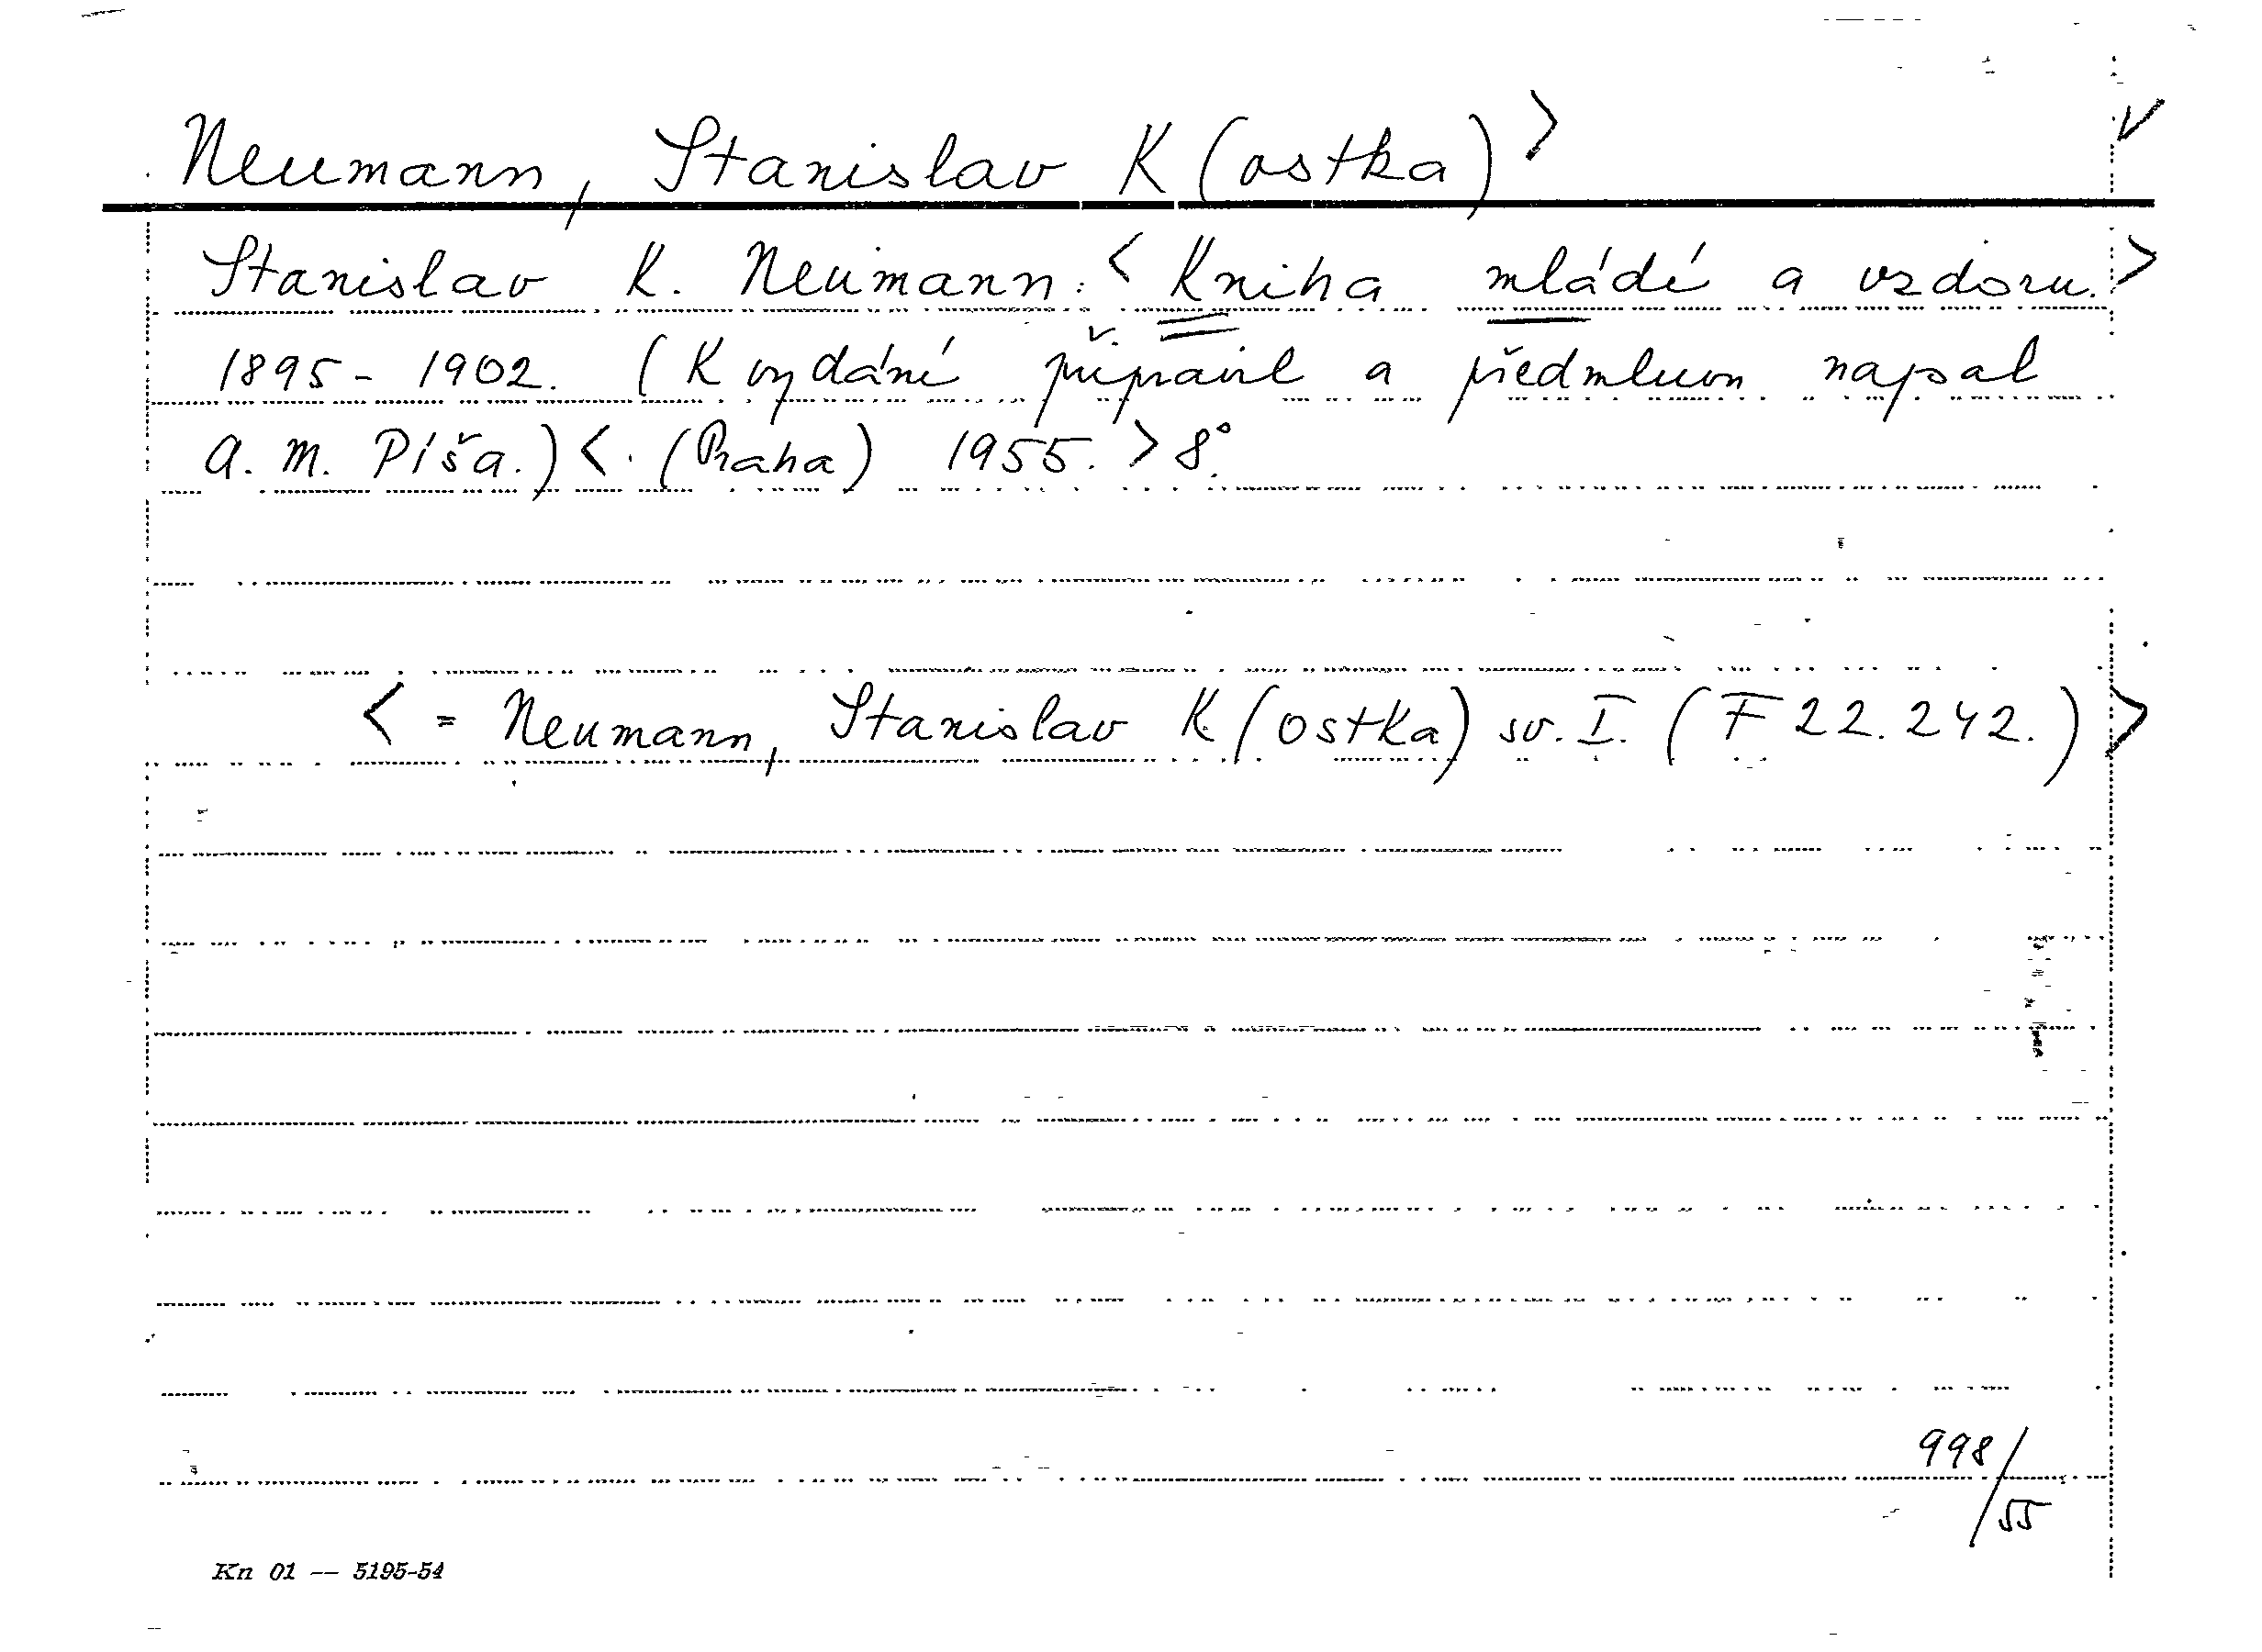 Neumann, Stanislav K(ostka) > V
Stanislav K. Neumann: < Kniha mládí a vzdoru. >
1895 - 1902. (K vydání připravil a předmluvu napsal
A. M. Píša.) < . (Praha) 1955. > 8°.
< = Neumann, Stanislav K(ostka) sv. I. (F 22.242.) >
998/55
Kn 01 -- 5195-54